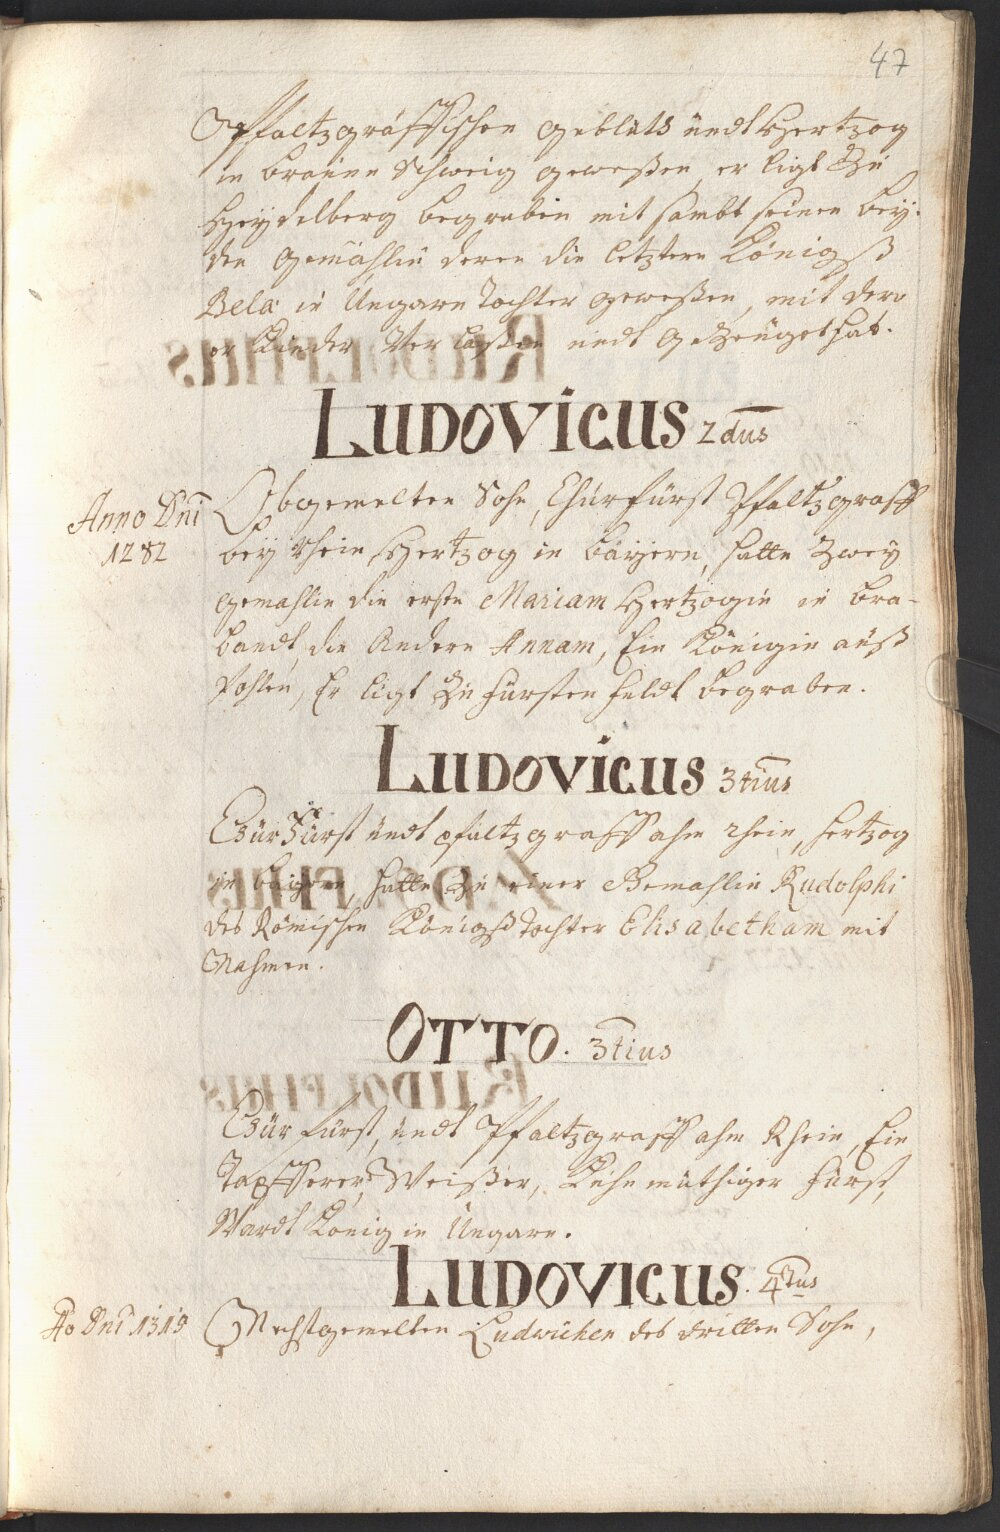 47
Pfaltzgräffischen geblüts undt Hertzog
in braun Schweig geweßen, er ligt Zu
Heydelberg begraben mit sambt seinen bey-
den Gemählin deren die letztere Königß
Bela in Ungarn Tochter geweßen, mit der
er Kinder Verlaßen undt gezeüget hat.
LUDOVICUS 2dus
Anno Dnī
1282
Obgemelten Sohn, Chürfürst Pfaltzgraff
bey Rhein, Hertzog in bayern, hatte Zwey
gemahlin die erste Mariam Hertzogin in bra-
bandt, die Andere Annam, Ein Königin auß
Pohlen, Er ligt Zu fürsten feldt begraben.
LUDOVICUS 3tius
Chürfürst undt pfaltzgraff ahm rhein, hertzog
in bayern, hatte Zu einer Gemahlin Rudolphi
des Römischen Königß Tochter Elisabetham mit
Nahmen.
OTTO. 3tius
Chür fürst, undt Pfaltzgraff ahm Rhein, Ein
Tapfferer, Weißer, Kühn müthiger fürst,
Wardt König in Ungarn.
LUDOVICUS. 4tus
Ao Dnī 1319
Nechstgemelten Ludwichen des dritten Sohn,